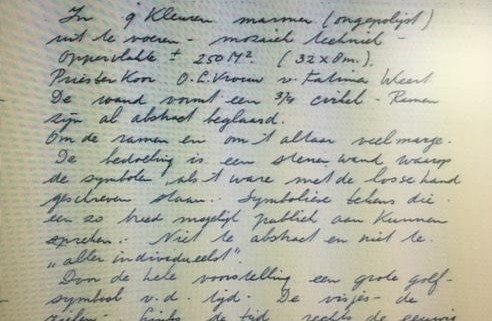 In 9 Kleuren marmer (ongepolijst)
uit te voeren - mozaïek techniek -
Oppervlakte ± 250 M². (32 x 8 m.).
Priesterkoor O.L.Vrouw v. Fatima Weert
De wand vormt een 3/4 cirkel - Ramen
zijn al abstract beglaasd.
Om de ramen en om 't altaar veel marge.
De bedoeling is een stenen wand waarop
de symbolen als 't ware met de losse hand
geschreven staan. Symbolieve tekens die
een zo breed mogelijk publiek aan kunnen
spreken. Niet te abstract en niet te
"aller individueelst".
Door de hele voorstelling een grote golf-
symbool v.d. tijd. De visjes - de
zielen. Links de tijd rechts de eeuwig